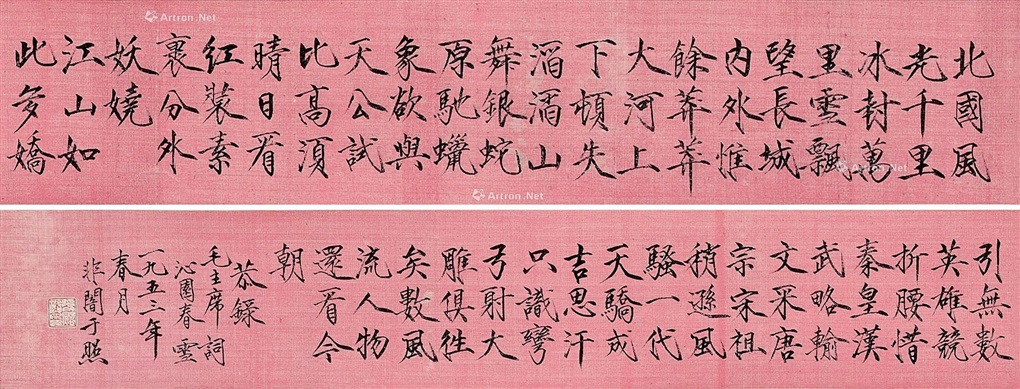 北國風
光千里
冰封萬
里雪飄
望長城
內外惟
餘莽莽
大河上
下頓失
滔滔山
舞銀蛇
原馳蠟
象欲與
天公試
比高須
晴日看
紅裝素
裹分外
妖嬈
江山如
此多嬌
引無數
英雄競
折腰惜
秦皇漢
武略輸
文采唐
宗宋祖
稍遜風
騷一代
天驕成
吉思汗
只識彎
弓射大
雕俱往
矣數風
流人物
還看今
朝
恭錄
毛主席詞
沁園春雪
一九五三年
春月
非闇于照
Artron.Net
Artron.Net
Artron.Net